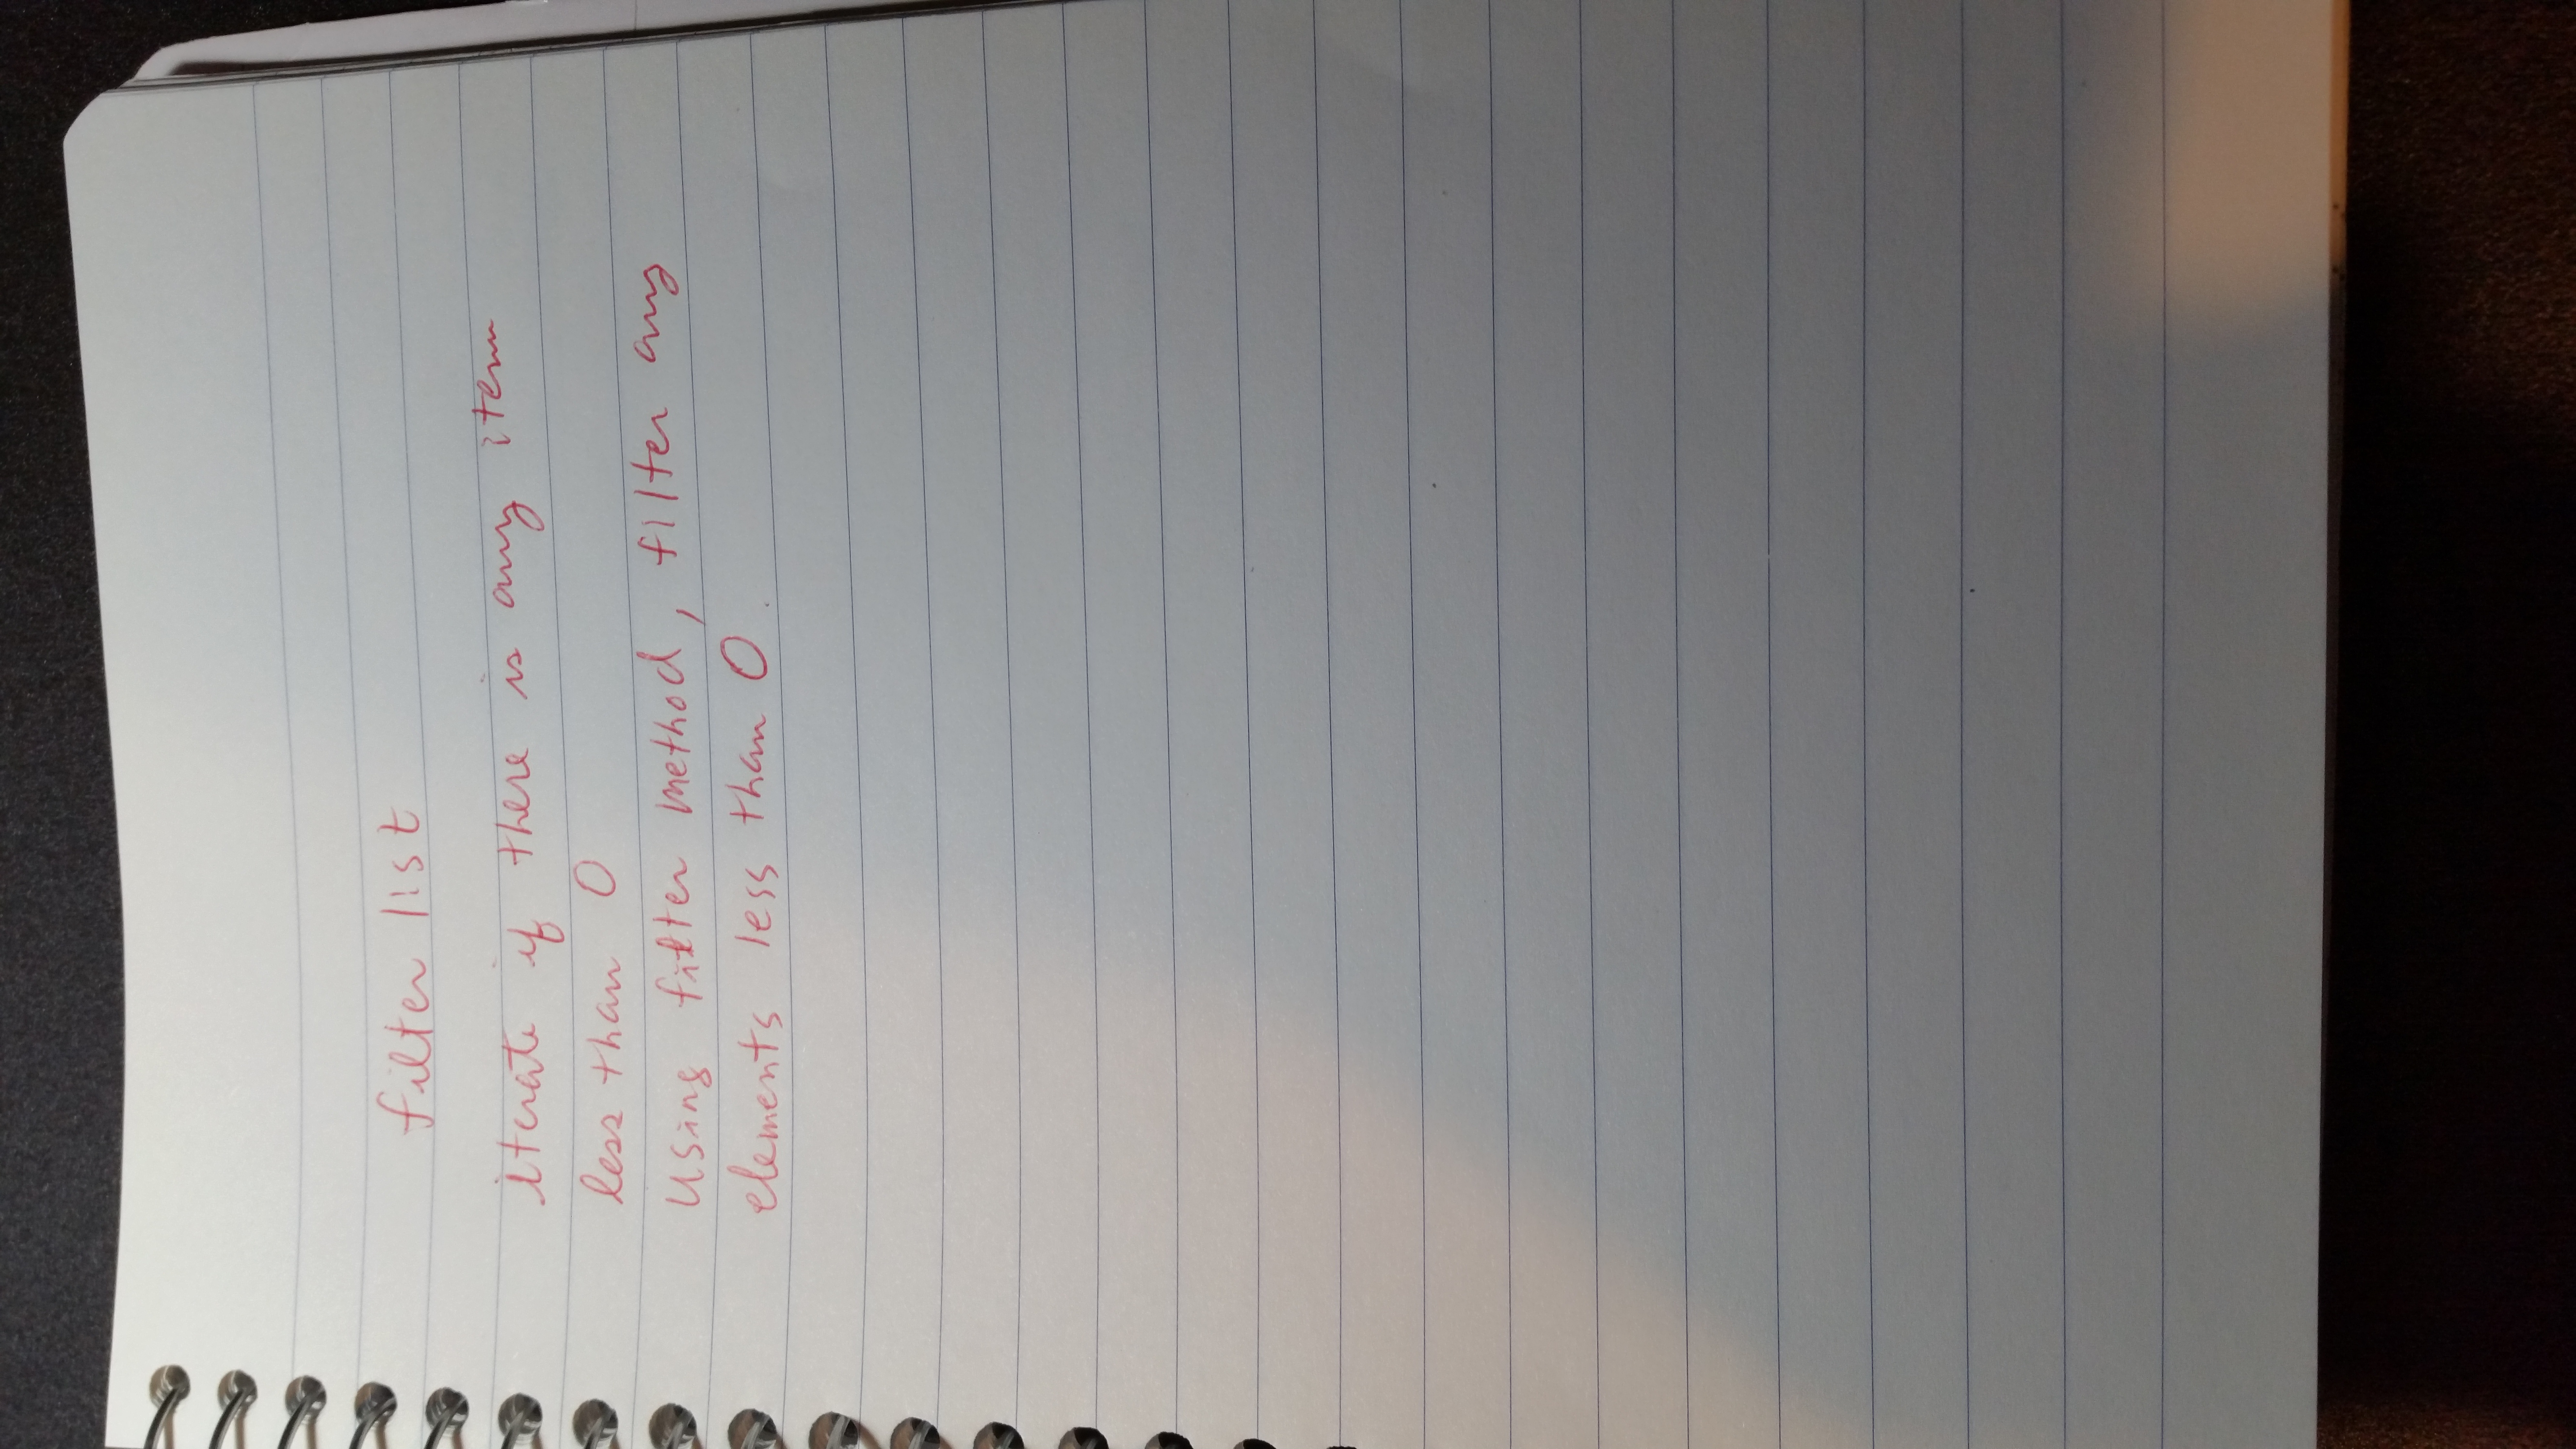 filter list
iterate if there is any item
less than 0
Using filter method, filter any
elements less than 0.